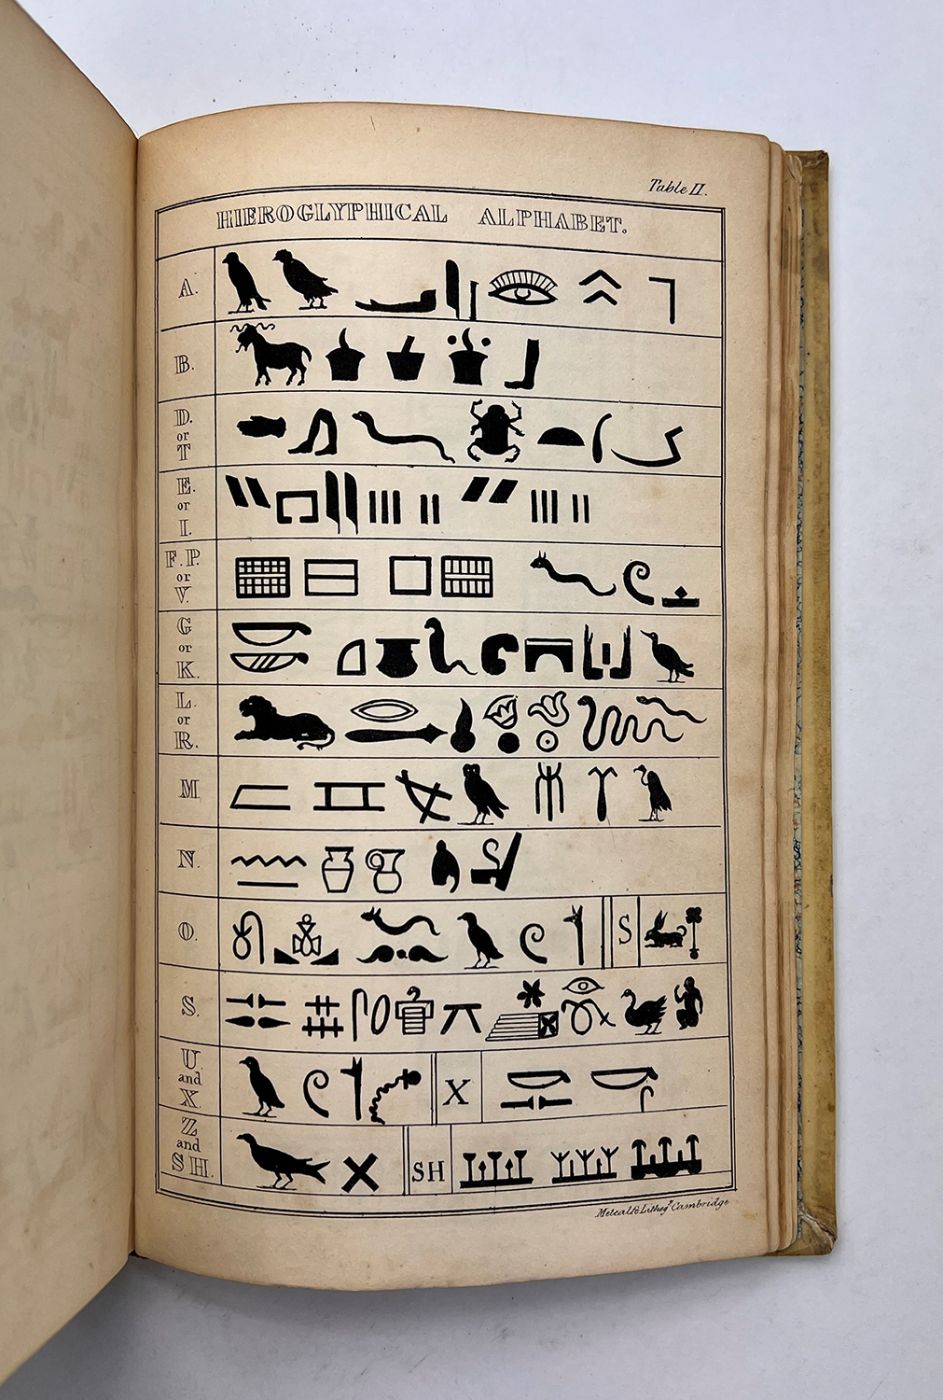 Table II.
HIEROGLYPHICAL ALPHABET.
A.
B.
D.
or
T
E.
or
I.
F. P.
or
V.
G
or
K.
L.
or
R.
M
N.
O.
S
S.
U
and
X.
X
Z
and
SH.
SH
Cambridge